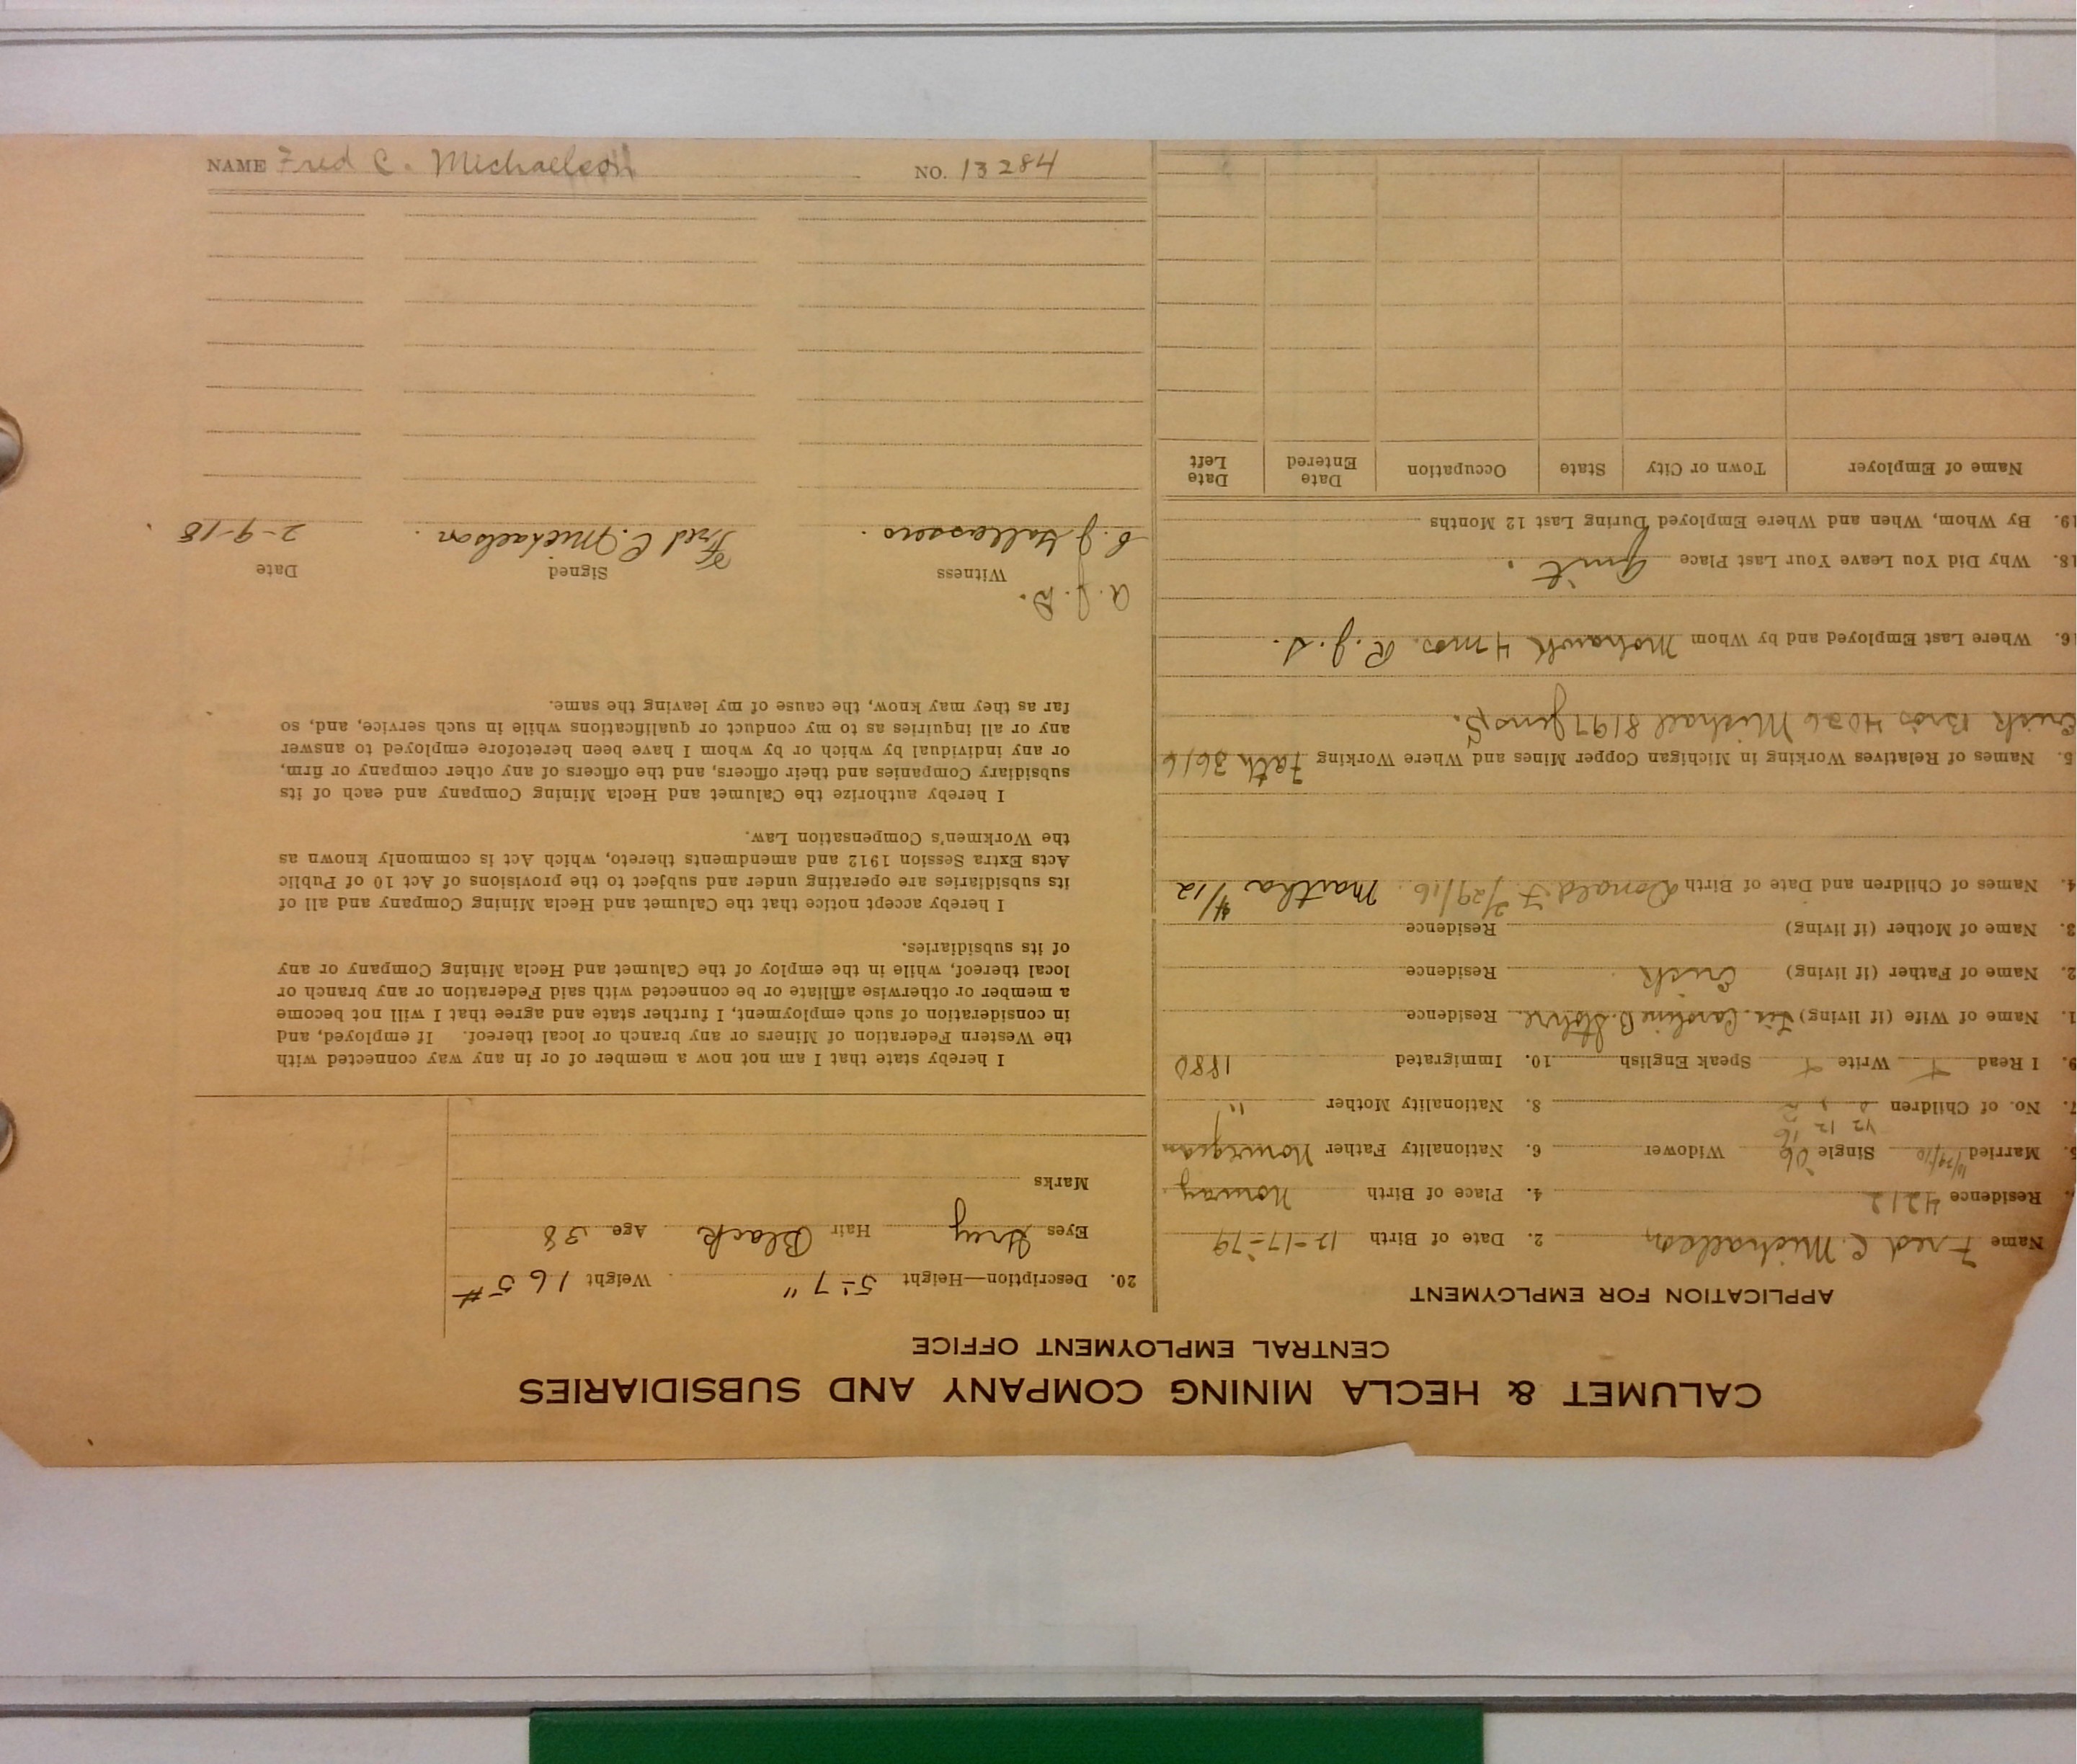 CALUMET & HECLA MINING COMPANY AND SUBSIDIARIES
CENTRAL EMPLOYMENT OFFICE
APPLICATION FOR EMPLOYMENT
Name Fred C. Michaelson 2. Date of Birth 12-17-79
Residence 4212 4. Place of Birth Norway
5. Married Single Widower 6. Nationality Father Norwegian
7. No. of Children 8. Nationality Mother "
9. I Read Write Speak English 10. Immigrated 1880
1. Name of Wife (if living) Caroline B. Residence
2. Name of Father (if living) Erick Residence
3. Name of Mother (if living) Residence
4. Names of Children and Date of Birth Donald F. 2/29/16. Martha 4/12
5. Names of Relatives Working in Michigan Copper Mines and Where Working Fath 3616
Erick Bros 4036 Michael 8197
16. Where Last Employed and by Whom Mohawk 4 mos. R.J.S.
18. Why Did You Leave Your Last Place Quit.
19. By Whom, When and Where Employed During Last 12 Months
Name of Employer Town or City State Occupation Date Entered Date Left
20. Description—Height 5-7" Weight 165#
Eyes Grey Hair Black Age 38
Marks
I hereby state that I am not now a member of or in any way connected with
the Western Federation of Miners or any branch or local thereof. If employed, and
in consideration of such employment, I further state and agree that I will not become
a member or otherwise affiliate or be connected with said Federation or any branch or
local thereof, while in the employ of the Calumet and Hecla Mining Company or any
of its subsidiaries.
I hereby accept notice that the Calumet and Hecla Mining Company and all of
its subsidiaries are operating under and subject to the provisions of Act 10 of Public
Acts Extra Session 1912 and amendments thereto, which Act is commonly known as
the Workmen's Compensation Law.
I hereby authorize the Calumet and Hecla Mining Company and each of its
subsidiary Companies and their officers, and the officers of any other company or firm,
or any individual by which or by whom I have been heretofore employed to answer
any or all inquiries as to my conduct or qualifications while in such service, and, so
far as they may know, the cause of my leaving the same.
Witness Signed Date
Fred C. Michaelson. 2-9-18
NAME Fred C. Michaelson NO. 13284